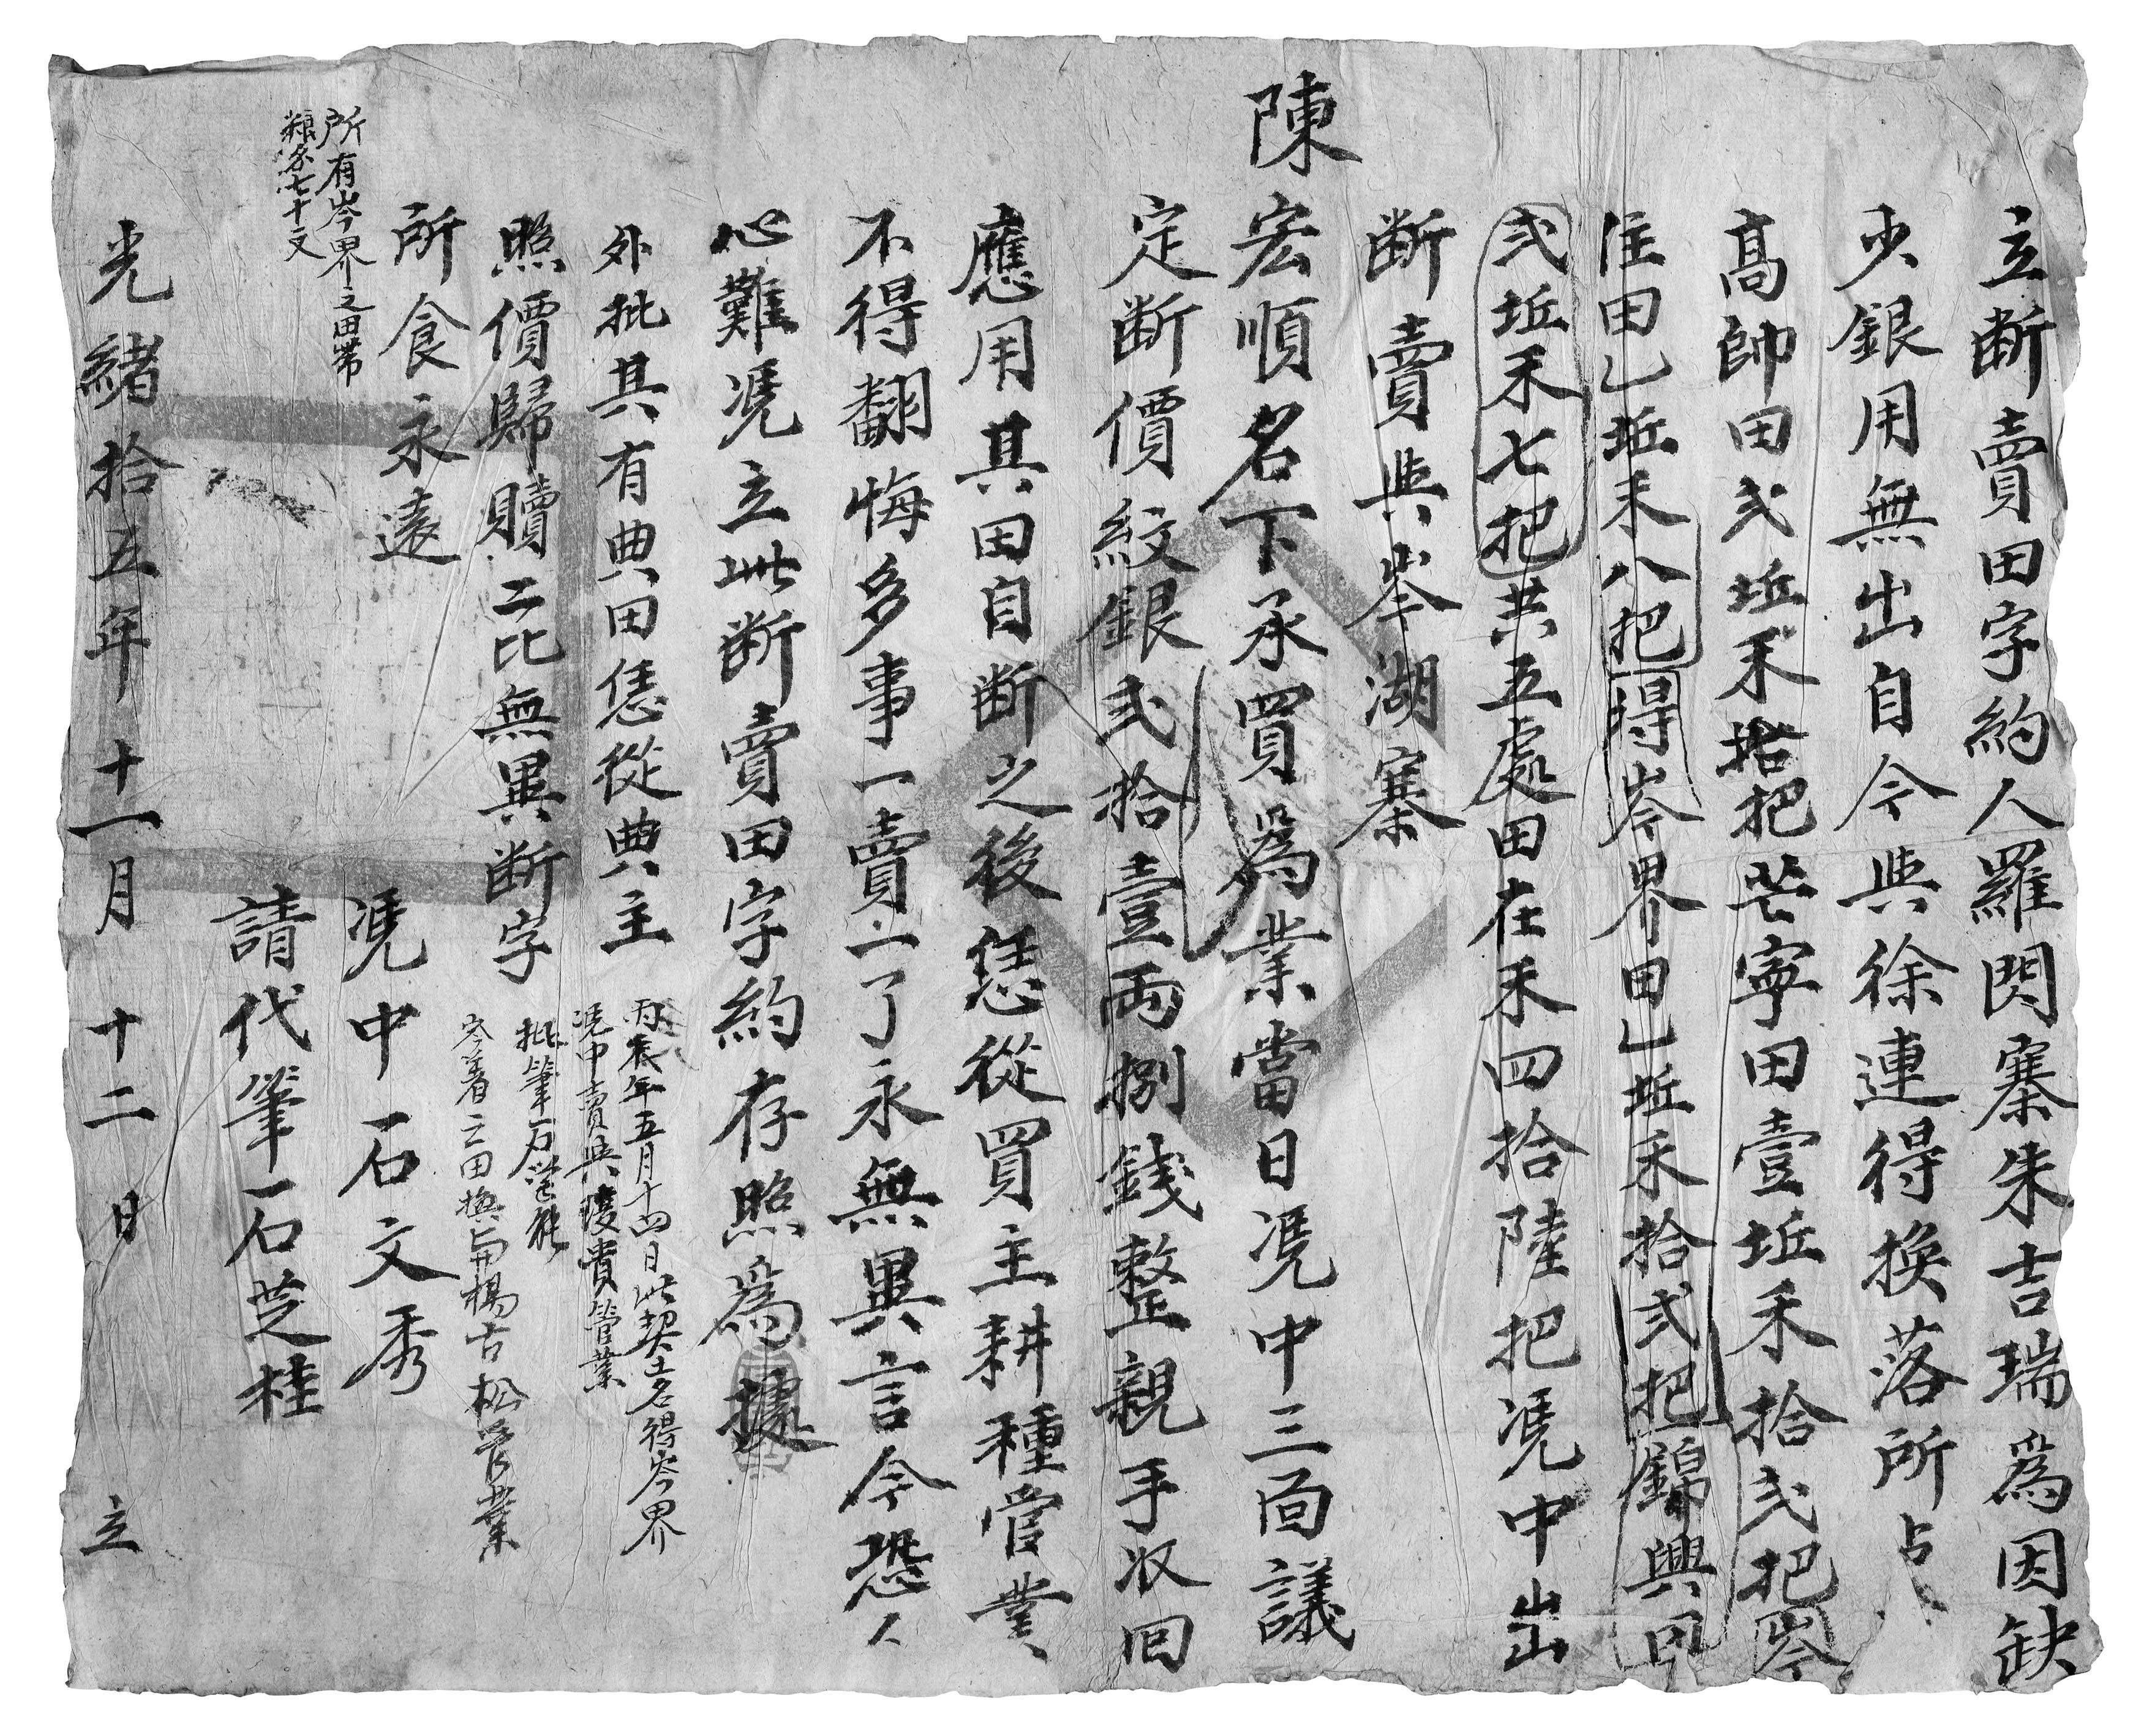 立断賣田字約人羅閃寨朱吉瑞爲因缺
少銀用無出自今與徐連得換落所占
高帥田弍坵禾拾把芒寧田壹坵禾拾弍把岑
住田乙坵禾八把得岑界田乙坵禾拾弍把錦興田
弍坵禾七把共五處田在禾四拾陸把凴中出
断賣與岑湖寨
陳宏順名下承買爲業當日凴中三面議
定断價紋銀弍拾壹両捌錢整親手收回
應用其田自断之後恁從買主耕種管業
不得翻悔多事一賣一了永無異言今恐人
心難凴立此断賣田字約存照爲據
外批其有典田恁從典主
照價歸贖二比無異断字
所食永遠
丙辰年五月十四日此契土名得岑界
凴中賣與陵貴管業
批筆石
岑著之田換與楊古松管業
所有岑界之田帶
粮名七十文
凴中石文秀
請代筆石芝桂
光緒拾五年十一月十二日立